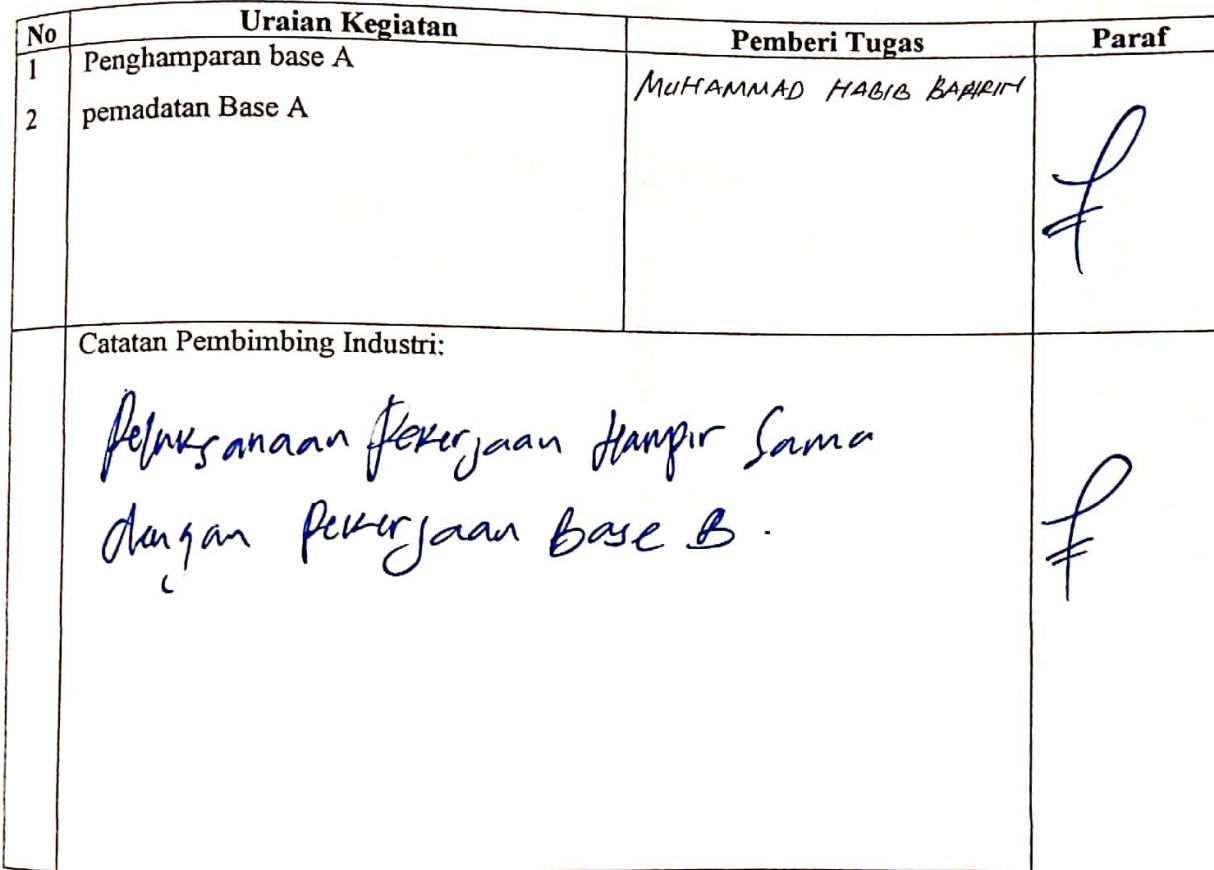 No Uraian Kegiatan Pemberi Tugas Paraf
1 Penghamparan base A MUHAMMAD HABIB
2 pemadatan Base A
Catatan Pembimbing Industri:
Pelaksanaan Pekerjaan Hampir Sama
dengan Pekerjaan Base B.